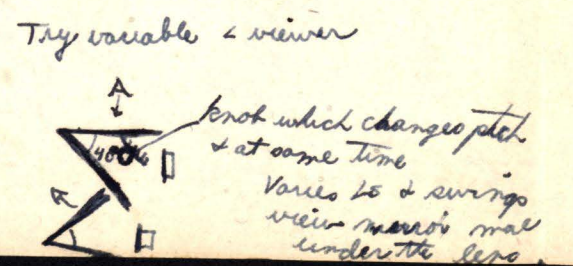 Try variable < viewer
A
knob which changes pitch
& at same time
40°
Varies Ls & swings
view mirror
under the lens.